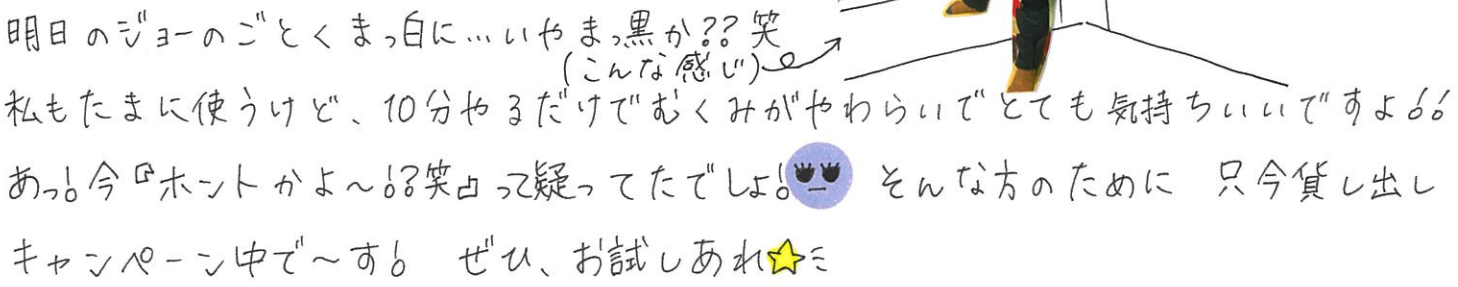 明日のジョーのごとくまっ白に…いやまっ黒か??笑
(こんな感じ)
私もたまに使うけど、10分やるだけでむくみがやわらいでとても気持ちいいですよ!!
あっ!今『ホントかよ~!?笑』って疑ってたでしょ! そんな方のために 只今貸し出し
キャンペーン中で~す! ぜひ、お試しあれ☆ミ